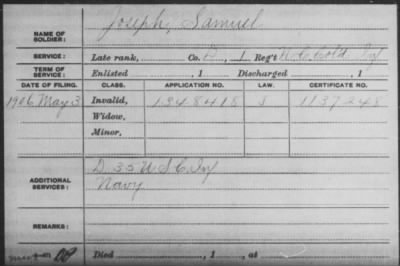 NAME OF SOLDIER: Joseph, Samuel
SERVICE: Late rank, Co. D, 1 Reg't N.C. Cold. Inf
TERM OF SERVICE: Enlisted , 1 Discharged , 1
DATE OF FILING. CLASS. APPLICATION NO. LAW. CERTIFICATE NO.
1906 May 3 Invalid, 1348418 S 1137248
Widow,
Minor,
ADDITIONAL SERVICES: D 35 U S C Inf
Navy
REMARKS:
Died , 1 , at